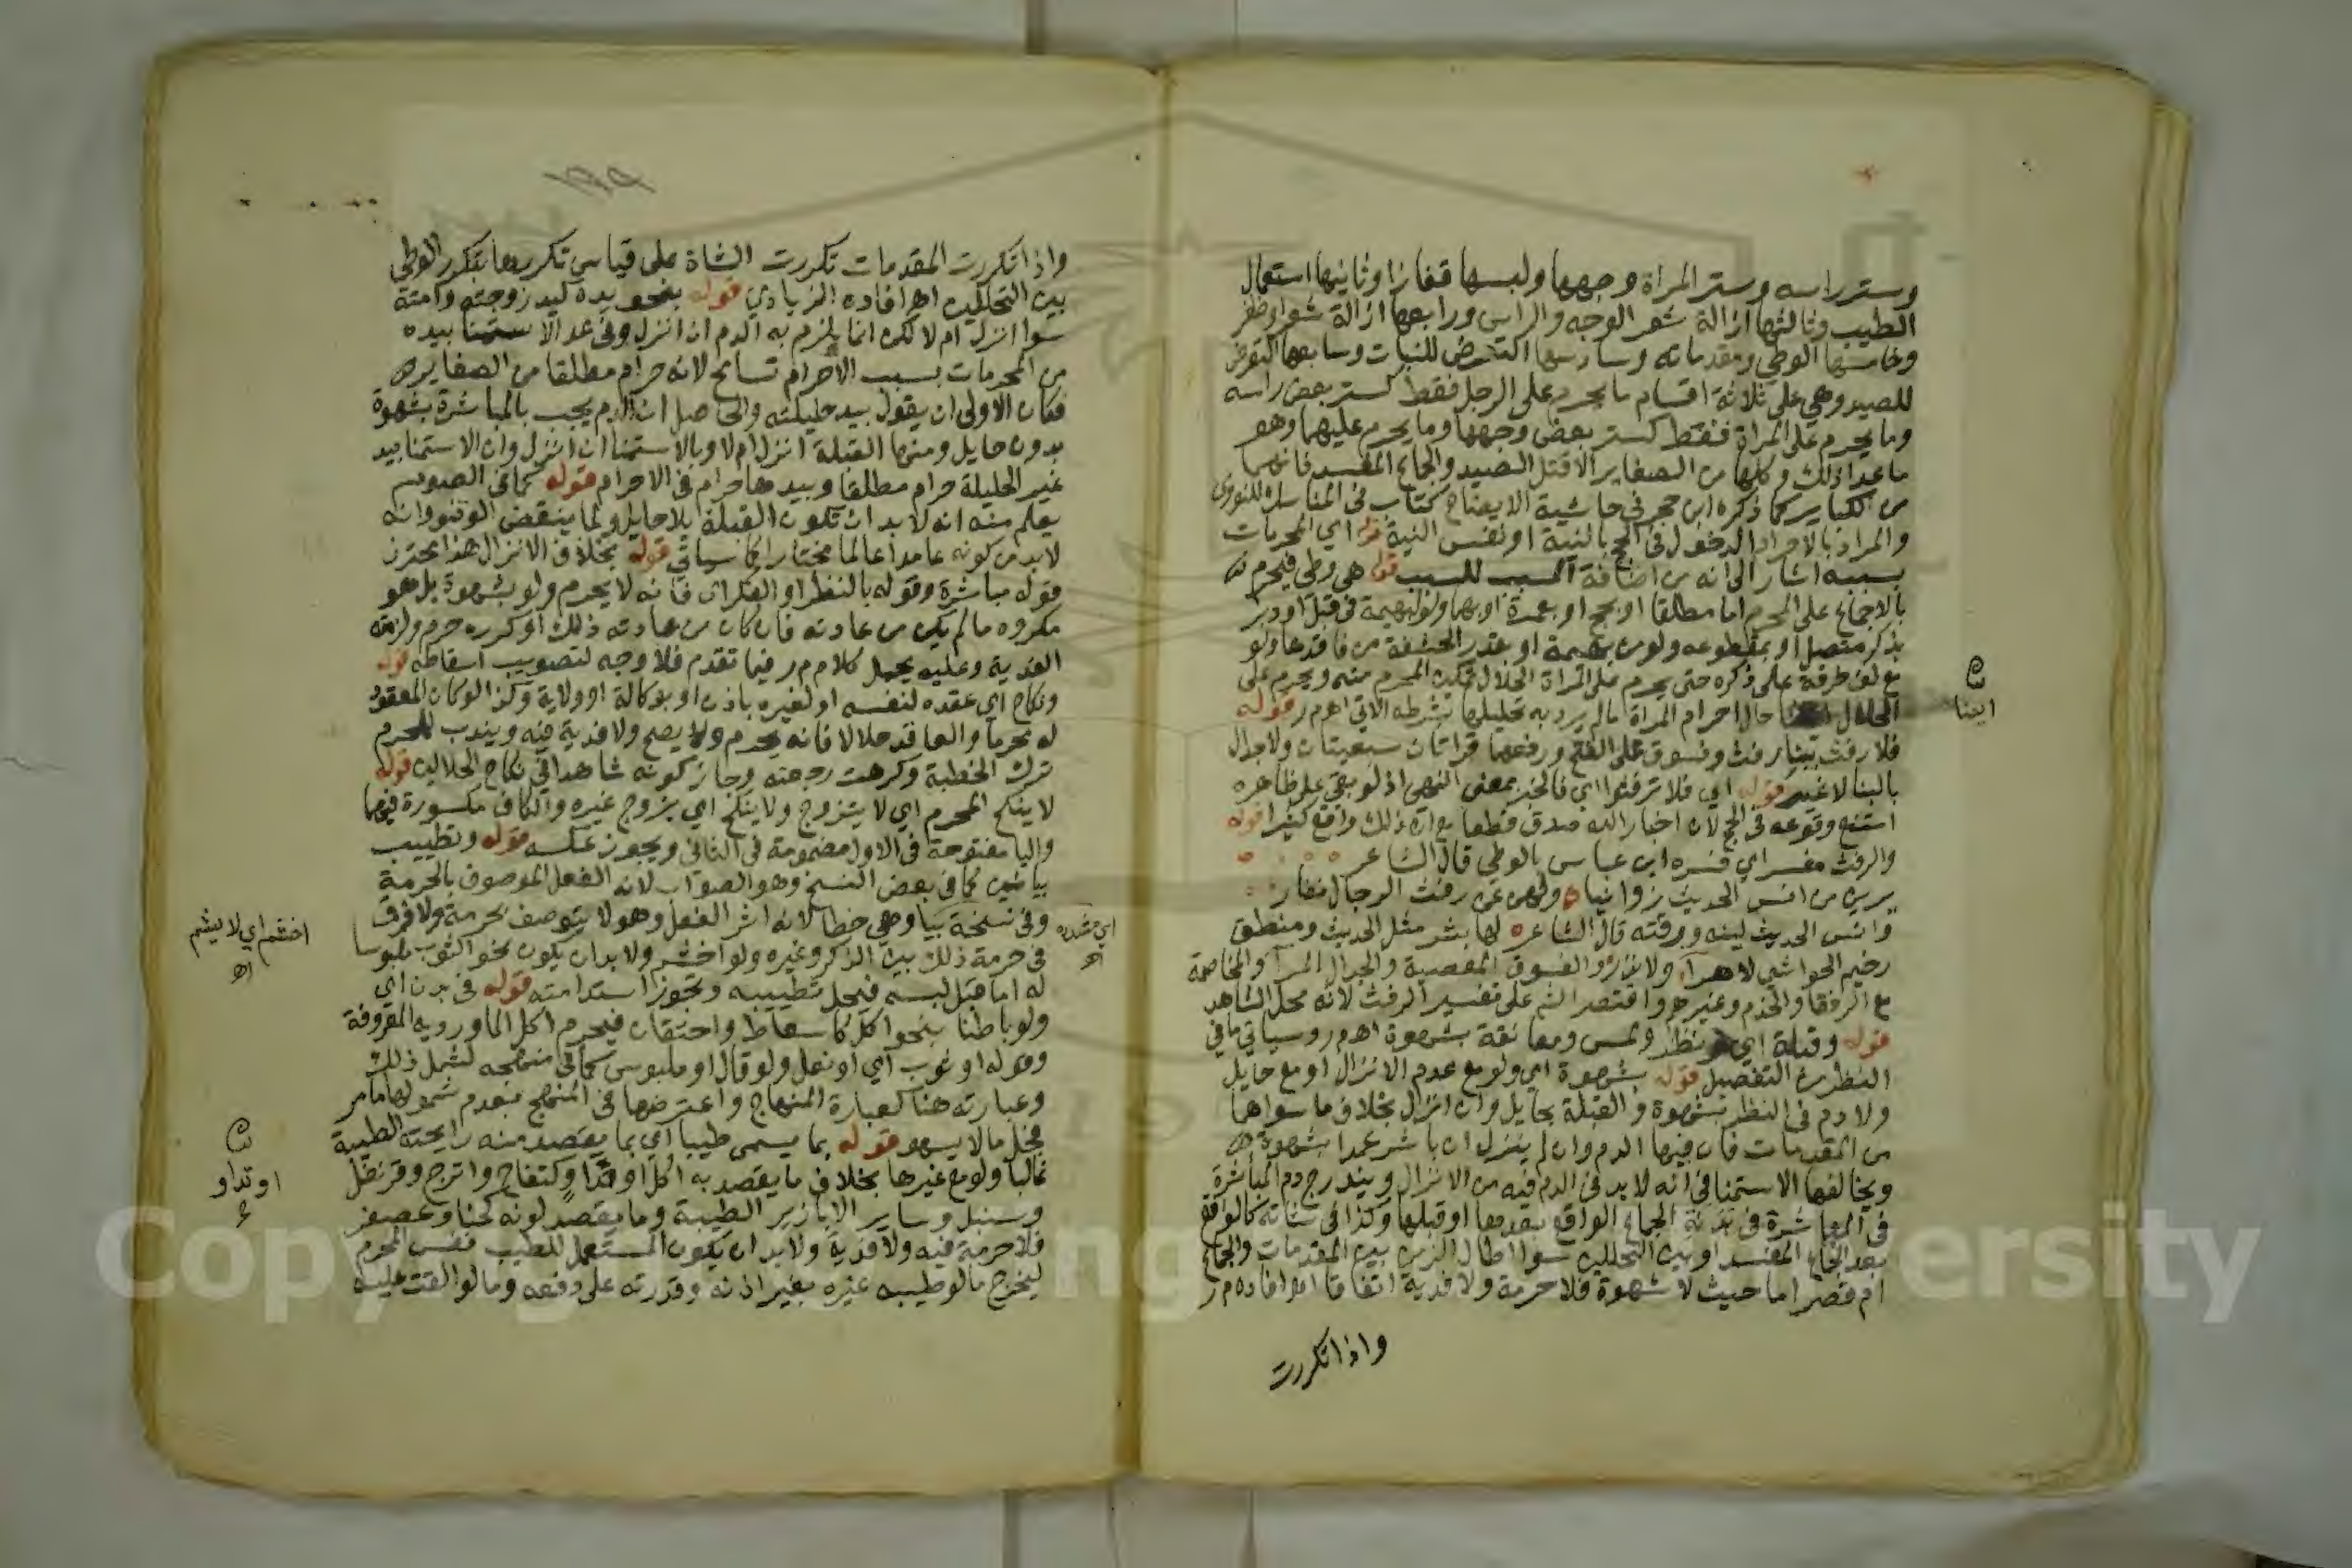 وستر راسه وستر المراة وجهها ولبسها قفازا وثانيها استعمال
الطيب وثالثها ازالة شعر الوجه والراس ورابعها ازالة شعر او ظفر
وخامسها الوطي ومقدماته وسادسها التعرض للنبات وسابعها التعرض
للصيد وهي على ثلاثة اقسام ما يحرم على الرجل فقط كستر بعض راسه
وما يحرم على المراة فقط كستر بعض وجهها وما يحرم عليهما وهو
ما عدا ذلك وكلها من الصغاير الا قتل الصيد والجماع المفسد فانهما
من الكباير كما ذكره ابن حجر في حاشية الايضاح كتاب في المناسك للنووي
والمراد بالاحرام الدخول في الحج بالنية او نفس النية قوله اي المحرمات
بسببه اشار الى انه من اضافة المسبب للسبب قوله هي وطي فيحرم
بالاجماع على المحرم اما مطلقا او بحج او بعمرة او بهما ولو لبهيمة في قبل او دبر
بذكر متصل او بمقطوعه ولو من بهيمة او بقدر الحشفة من فاقدها ولو
مع لف خرقة على ذكره حتى يحرم على المراة الحلال تمكين المحرم منه ويحرم على
الحلال حال احرام المراة ما لم يرد به تحليلها بشرطه الاتي اهـ م ر قوله
فلا رفث ببنا رفث وفسوق على الفتح ورفعهما قراتان سبعيتان ولا جدال
بالبنا لا غير قوله اي فلا ترفثوا اي فالخبر بمعنى النهي اذ لو بقي على ظاهره
امتنع وقوعه في الحج لان اخبار الله صدق قطعا مع ان ذلك واقع كثيرا قوله
والرفث مفسر اي فسره ابن عباس بالوطي قال الشاعر
يرين من انس الحديث زوانيا ولهن عن رفث الرجال نفار
وانس الحديث لينه ورقته قال الشاعر لها بشر مثل الحديث ومنطق
رخيم الحواشي لا هراء ولا نزر والفسوق المعصية والجدال المرآ والمخاصمة
مع الرفقا والخدم وغيرهم واقتصر الش على تفسير الرفث لانه محل الشاهد
قوله وقبلة اي ونظر ولمس ومعانقة بشهوة اهـ م ر وسياتي ما في
النظر من التفصيل قوله بشهوة اي ولو مع عدم الانزال او مع حايل
ولا دم في النظر بشهوة والقبلة بحايل وان انزل بخلاف ما سواهما
من المقدمات فان فيها الدم وان لم ينزل ان باشر عمدا بشهوة
ويخالفها الاستمنا في انه لا بد في الدم فيه من الانزال ويندرج دم المباشرة
في المباشرة في بدنة الجماع الواقع بعدها او قبلها وكذا في شاته كالواقع
بعد الجماع المفسد او بين التحللين سوا اطال الزمن بين المقدمات والجماع
ام قصر اما حيث لا شهوة فلا حرمة ولا فدية اتفاقا اهـ افاده م ر
واذا تكررت
ايضا
واذا تكررت المقدمات تكررت الشاة على قياس تكررها بتكرر الوطي
بين التحللين اهـ افاده الزيادي قوله بنحو يده كيد زوجته وامته
سوا انزل ام لا لكن انما يلزم به الدم ان انزل وفي عد الاستمنا بيده
من المحرمات بسبب الاحرام تسامح لانه حرام مطلقا من الصغاير
فكان الاولى ان يقول بيد حليلته والحاصل ان الدم يجب بالمباشرة بشهوة
بدون حايل ومنها القبلة انزل ام لا وبالاستمنا ان انزل وان الاستمنا بيد
غير الحليلة حرام مطلقا وبيدها حرام في الاحرام قوله كما في الصوم
يعلم منه انه لا بد ان تكون القبلة بلا حايل ولما ينقض الوضو وانه
لا بد من كونه عامدا عالما مختارا كما سياتي قوله بخلاف الانزال هذا محترز
قوله مباشرة وقوله بالنظر او الفكر اي فانه لا يحرم ولو بشهوة بل هو
مكروه ما لم يكن من عادته فان كان من عادته ذلك او كرره حرم ولزمته
الفدية وعليه يحمل كلام م ر فيما تقدم فلا وجه لتصويب اسقاطه قوله
ونكاح اي عقده لنفسه او لغيره باذن او بوكالة او ولاية وكذا لو كان المعقود
له محرما والعاقد حلالا فانه يحرم ولا يصح ولا فدية فيه ويندب للمحرم
ترك الخطبة وكرهت رجعته وجاز كونه شاهدا في نكاح الحلالين قوله
لا ينكح المحرم اي لا يتزوج ولا ينكح اي يزوج غيره والكاف مكسورة فيهما
واليا مفتوحة في الاول مضمومة في الثاني ويجوز عكسه قوله وتطييب
بيائين كما في بعض النسخ وهو الصواب لانه الفعل الموصوف بالحرمة
وفي نسخة بيا وهي خطا لانه اثر الفعل وهو لا يتوصف بحرمة ولا فرق
في حرمة ذلك بين الذكر وغيره ولو اخشم ولا بد ان يكون نحو الثوب ملبوسا
له اما قبل لبسه فيحل تطييبه وتجوز استدامته قوله في بدن اي
ولو باطنا بنحو اكل كاسعاط واحتقان فيحرم اكل الماورديه المعروفة
وقوله او ثوب اي او نعل ولو قال او ملبوس كما في منهجه لشمل ذلك
وعبارته هنا كعبارة المنهاج واعترضها في المنهج بعدم شمولها مامر
فجل ما لا يسهو قوله بما يسمى طيبا اي بما يقصد منه رايحته الطيبة
غالبا ولو مع غيرها بخلاف ما يقصد به اكل او كتفاح واترج وقرنفل
وسنبل وساير الابازير الطيبة وما يقصد لونه كحنا وعصفر
فلا حرمة فيه ولا فدية ولا بد ان يكون المستعمل للطيب نفس المحرم
ليخرج ما لو طيبه غيره بغير اذنه وقدرته على دفعه وما لو القت عليه
اي مشددة
اخشم اي لا يشم
اهـ
او تداو